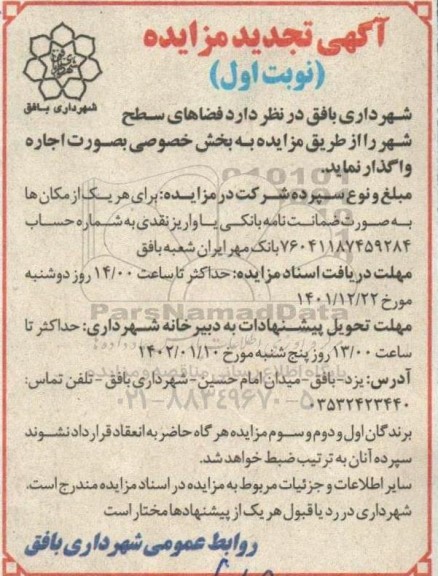 آگهی تجدید مزایده
(نوبت اول)
شهرداری بافق
شهرداری بافق در نظر دارد فضاهای سطح
شهر را از طریق مزایده به بخش خصوصی بصورت اجاره
واگذار نماید.
مبلغ و نوع سپرده شرکت در مزایده: برای هر یک از مکان ها
به صورت ضمانت نامه بانکی یا واریز نقدی به شماره حساب
۷۶۰۴۱۱۸۷۴۵۹۲۸۴ بانک مهر ایران شعبه بافق
مهلت دریافت اسناد مزایده: حداکثر تا ساعت ۱۴/۰۰ روز دوشنبه
مورخ ۱۴۰۱/۱۲/۲۲
ParsNamadData
مهلت تحویل پیشنهادات به دبیرخانه شهرداری: حداکثر تا
ساعت ۱۳/۰۰ روز پنج شنبه مورخ ۱۴۰۲/۰۱/۱۰
پایگاه اطلاع رسانی مناقصه و مزایده
آدرس: یزد- بافق- میدان امام حسین- شهرداری بافق - تلفن تماس:
۰۳۵۳۲۴۲۳۴۴۰
۰۲۱-۸۸۳۴۹۶۷۰-۵
برندگان اول و دوم و سوم مزایده هر گاه حاضر به انعقاد قرارداد نشوند
سپرده آنان به ترتیب ضبط خواهد شد.
سایر اطلاعات و جزئیات مربوط به مزایده در اسناد مزایده مندرج است.
شهرداری در رد یا قبول هر یک از پیشنهادها مختار است
روابط عمومی شهرداری بافق